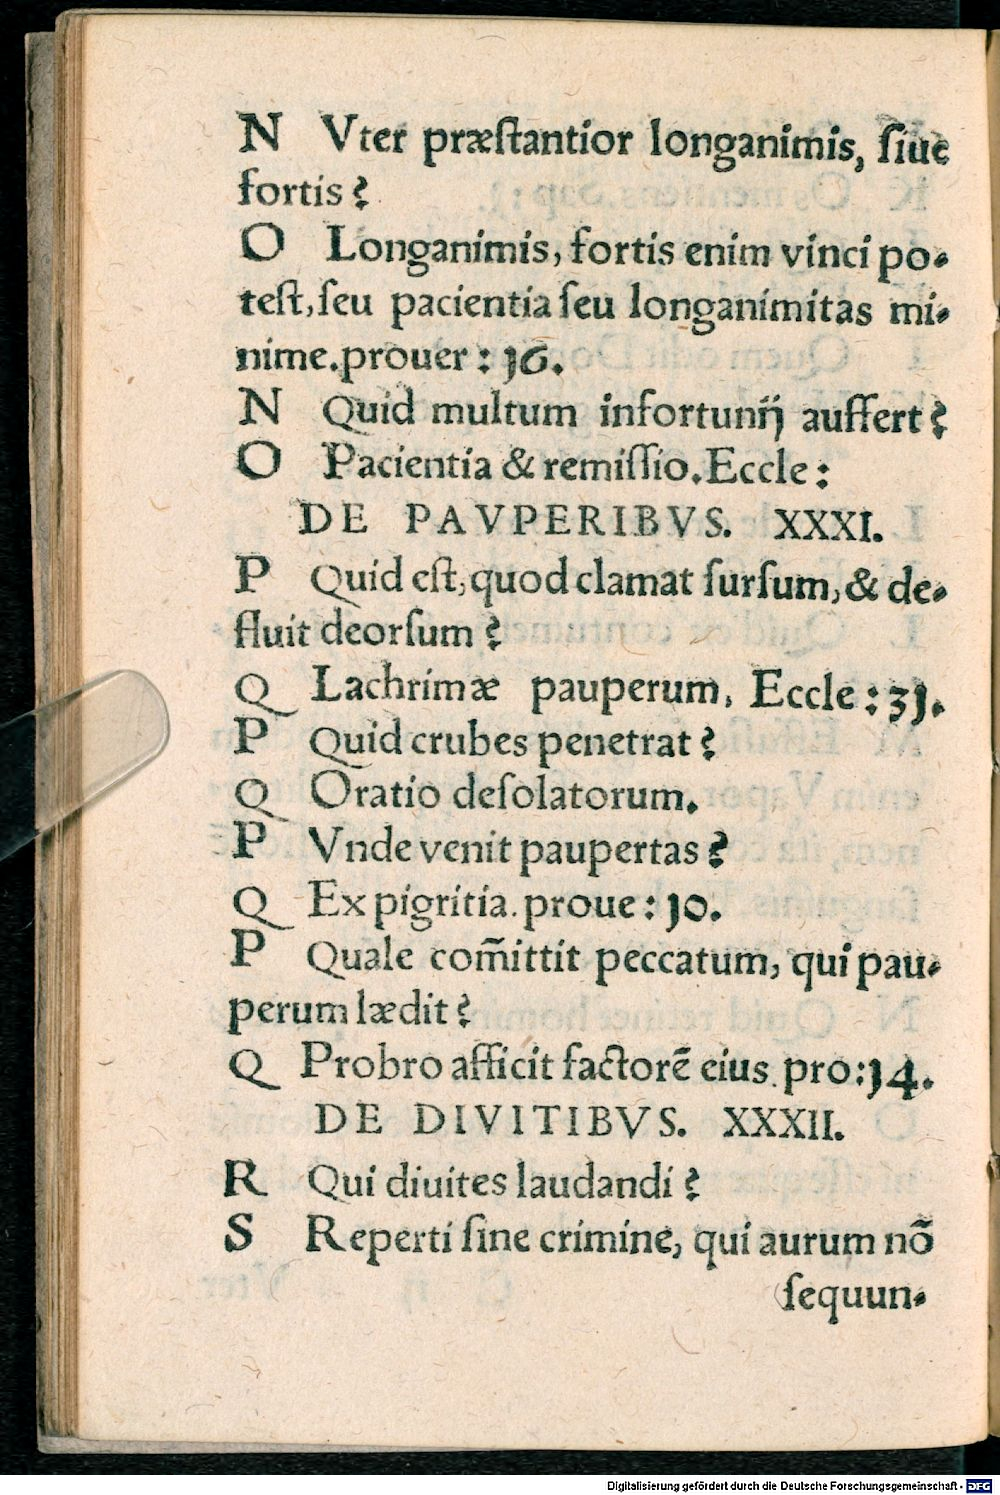 N Vter præſtantior longanimis, ſiue
fortis?
O Longanimis, fortis enim vinci po-
teſt, ſeu pacientia ſeu longanimitas mi-
nime. prouer: 16.
N Quid multum infortunij auffert?
O Pacientia & remiſſio. Eccle:
DE PAVPERIBVS. XXXI.
P Quid eſt, quod clamat ſurſum, & de-
fluit deorſum?
Q Lachrimæ pauperum, Eccle: 31.
P Quid crubes penetrat?
Q Oratio deſolatorum.
P Vnde venit paupertas?
Q Ex pigritia. proue: 10.
P Quale com̃ittit peccatum, qui pau-
perum lædit?
Q Probro afficit factorẽ eius. pro: 14.
DE DIVITIBVS. XXXII.
R Qui diuites laudandi?
S Reperti ſine crimine, qui aurum nõ
(ſequun-
Digitalisierung gefördert durch die Deutsche Forschungsgemeinschaft - DFG